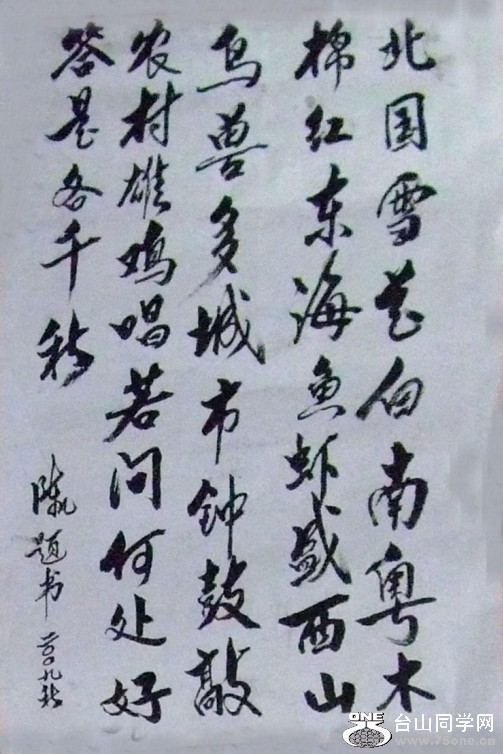 北国雪花白南粤木
棉红东海鱼虾盛西山
鸟兽多城市钟鼓敲
农村雄鸡唱若问何处好
答是各千秋
题书
台山同学网
www.tsone.com
ONE